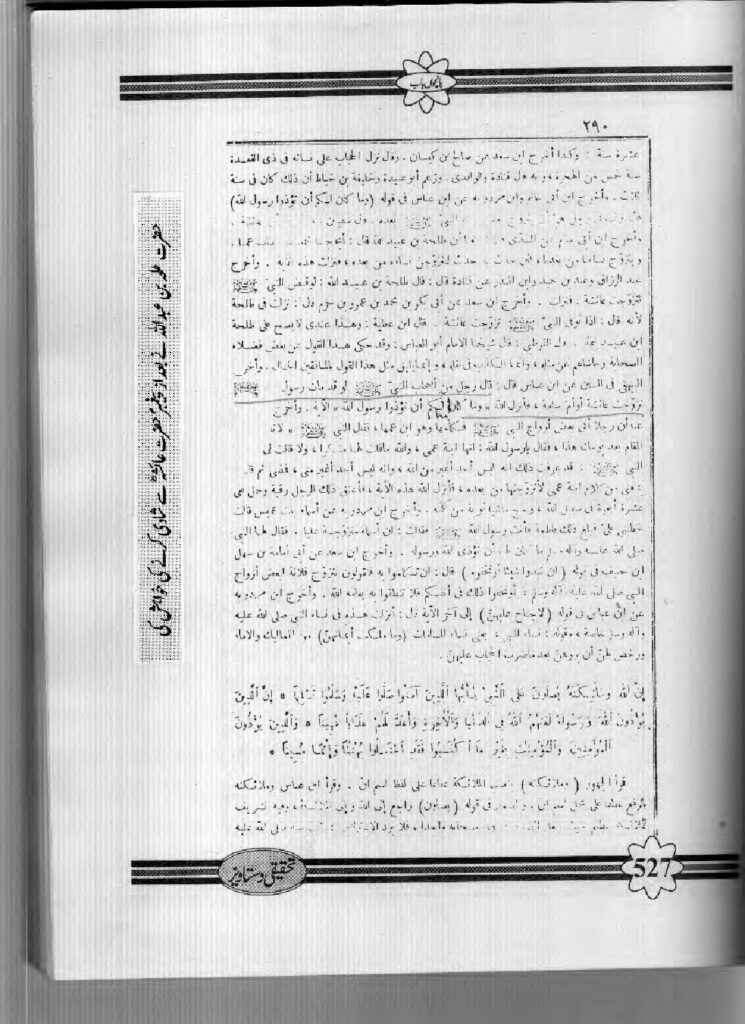 پانچواں باب
٢٩٠
عشرة سنة : وكذا أخرج ابن سعد عن صالح بن كيسان . وقال نزل الحجاب على نسائه فى ذى القعدة
سنة خمس من الهجرة وبه قال قتادة والواقدى . وزعم أبو عبيدة وخليفة بن خياط أن ذلك كان فى سنة
ثلاث . وأخرج ابن أبى حاتم وابن مردويه عن ابن عباس فى قوله (وما كان لكم أن تؤذوا رسول الله)
وأخرج ابن أبى حاتم عن السدى أن طلحة بن عبيد الله قال : أيحجبنا محمد
ويتزوج نساءنا من بعدنا ، لئن حدث به حدث لنتزوجن نساءه من بعده ، فنزلت هذه الآية . وأخرج
عبد الرزاق وعبد بن حميد وابن المنذر عن قتادة قال : قال طلحة بن عبيد الله : لو قبض النبى ﷺ
لتزوجت عائشة . فنزلت . وأخرج ابن سعد عن أبى بكر بن محمد بن عمرو بن حزم قال : نزلت فى طلحة
لأنه قال : اذا توفى النبى ﷺ تزوجت عائشة . قال ابن عطية : وهذا عندى لا يصح على طلحة
ابن عبيد الله . قال القرطبى : قال شيخنا الامام أبو العباس : وقد حكى هذا القول عن بعض فضلاء
الصحابة وحاشاهم عن مثله ، وانما الكذب فى نقله ، وانما يليق مثل هذا القول بالمنافقين الجهال . وأخرج
البيهقى فى السنن عن ابن عباس قال : قال رجل من أصحاب النبى ﷺ لو قد مات رسول ﷺ
تزوجت عائشة أو أم سلمة ، فأنزل الله « وما كان لكم أن تؤذوا رسول الله » الآية . وأخرج
عنه أن رجلا أتى بعض أزواج النبى ﷺ فكلمها وهو ابن عمها ، فقال النبى ﷺ « لا
المقام بعد يومك هذا ، فقال يا رسول الله : انها ابنة عمى ، والله ما قلت لها منكرا ، ولا قالت لى
النبى ﷺ : قد عرفت ذلك انه ليس أحد أغير من الله ، وانه ليس أحد أغير منى ، فمضى ثم قال
من كلام ابنة عمى لأتزوجنها من بعده ، فأنزل الله هذه الآية ، فأعتق ذلك الرجل رقبة وحمل على
عشرة أبعرة فى سبيل الله ، وحج ماشيا توبة من كلمته . وأخرج ابن مردويه عن أسماء بنت عميس قالت
خطبنى على فبلغ ذلك فاطمة فأتت رسول الله ﷺ فقالت : ان أسماء متزوجة عليا . فقال لها النبى
صلى الله عليه وآله وسلم ما كان لها أن تؤذى الله ورسوله . وأخرج ابن سعد عن أبى أمامة بن سهل
ابن حنيف فى قوله ( ان تبدوا شيئا أو تخفوه ) قال : ان تتكلموا به فتقولون نتزوج فلانة لبعض أزواج
النبى صلى الله عليه وآله وسلم ، أو تخفوا ذلك فى أنفسكم فلا تنطقوا به يعلمه الله . وأخرج ابن مردويه
عن ابن عباس فى قوله ( لا جناح عليهن ) إلى آخر الآية قال : أنزلت هذه فى نساء النبى صلى الله عليه
وآله وسلم خاصة ، وقوله : نساء النبى ، يعنى نساء المسلمات ( وما ملكت أيمانهن ) من المماليك والاماء
ورخص لهن أن يروهن بعد ما ضرب الحجاب عليهن .
إن الله وملائكته يصلون على النبي يأيها الذين آمنوا صلوا عليه وسلموا تسليما * إن الذين
يؤذون الله ورسوله لعنهم الله في الدنيا والآخرة وأعد لهم عذابا مهينا * والذين يؤذون
المؤمنين والمؤمنت بغير ما اكتسبوا فقد احتملوا بهتنا وإثما مبينا *
قرأ الجمهور ( وملائكته ) بنصب الملائكة عطفا على لفظ اسم ان . وقرأ ابن عباس وملائكته
بالرفع عطفا على محل اسم ان ، والضمير فى قوله ( يصلون ) راجع إلى الله وإلى الملائكة ، وفيه تشريف
حضرت طلحہ بن عبداللہ نے بعد از پیغمبرؐ حضرت عائشہؓ سے شادی کرنے کی خواہش کی
تحقیقی دستاویز
527